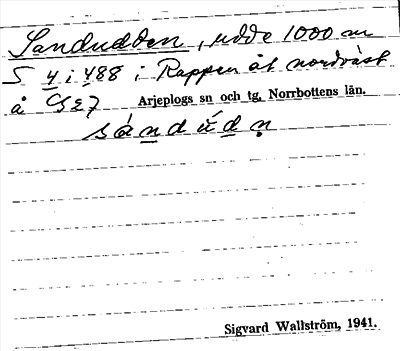 Sandudden, udde 1000 m
S 4 i 488 i Rappen åt nordväst
å GE7 Arjeplogs sn och tg, Norrbottens län.
sándúdṇ
Sigvard Wallström, 1941.